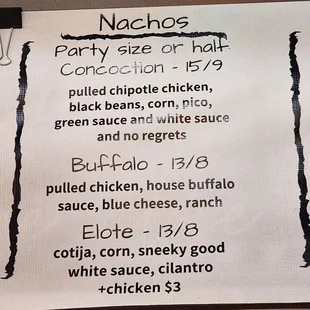 Nachos
Party size or half
Concoction - 15/9
pulled chipotle chicken,
black beans, corn, pico,
green sauce and white sauce
and no regrets
Buffalo - 13/8
pulled chicken, house buffalo
sauce, blue cheese, ranch
Elote - 13/8
cotija, corn, sneeky good
white sauce, cilantro
+chicken $3